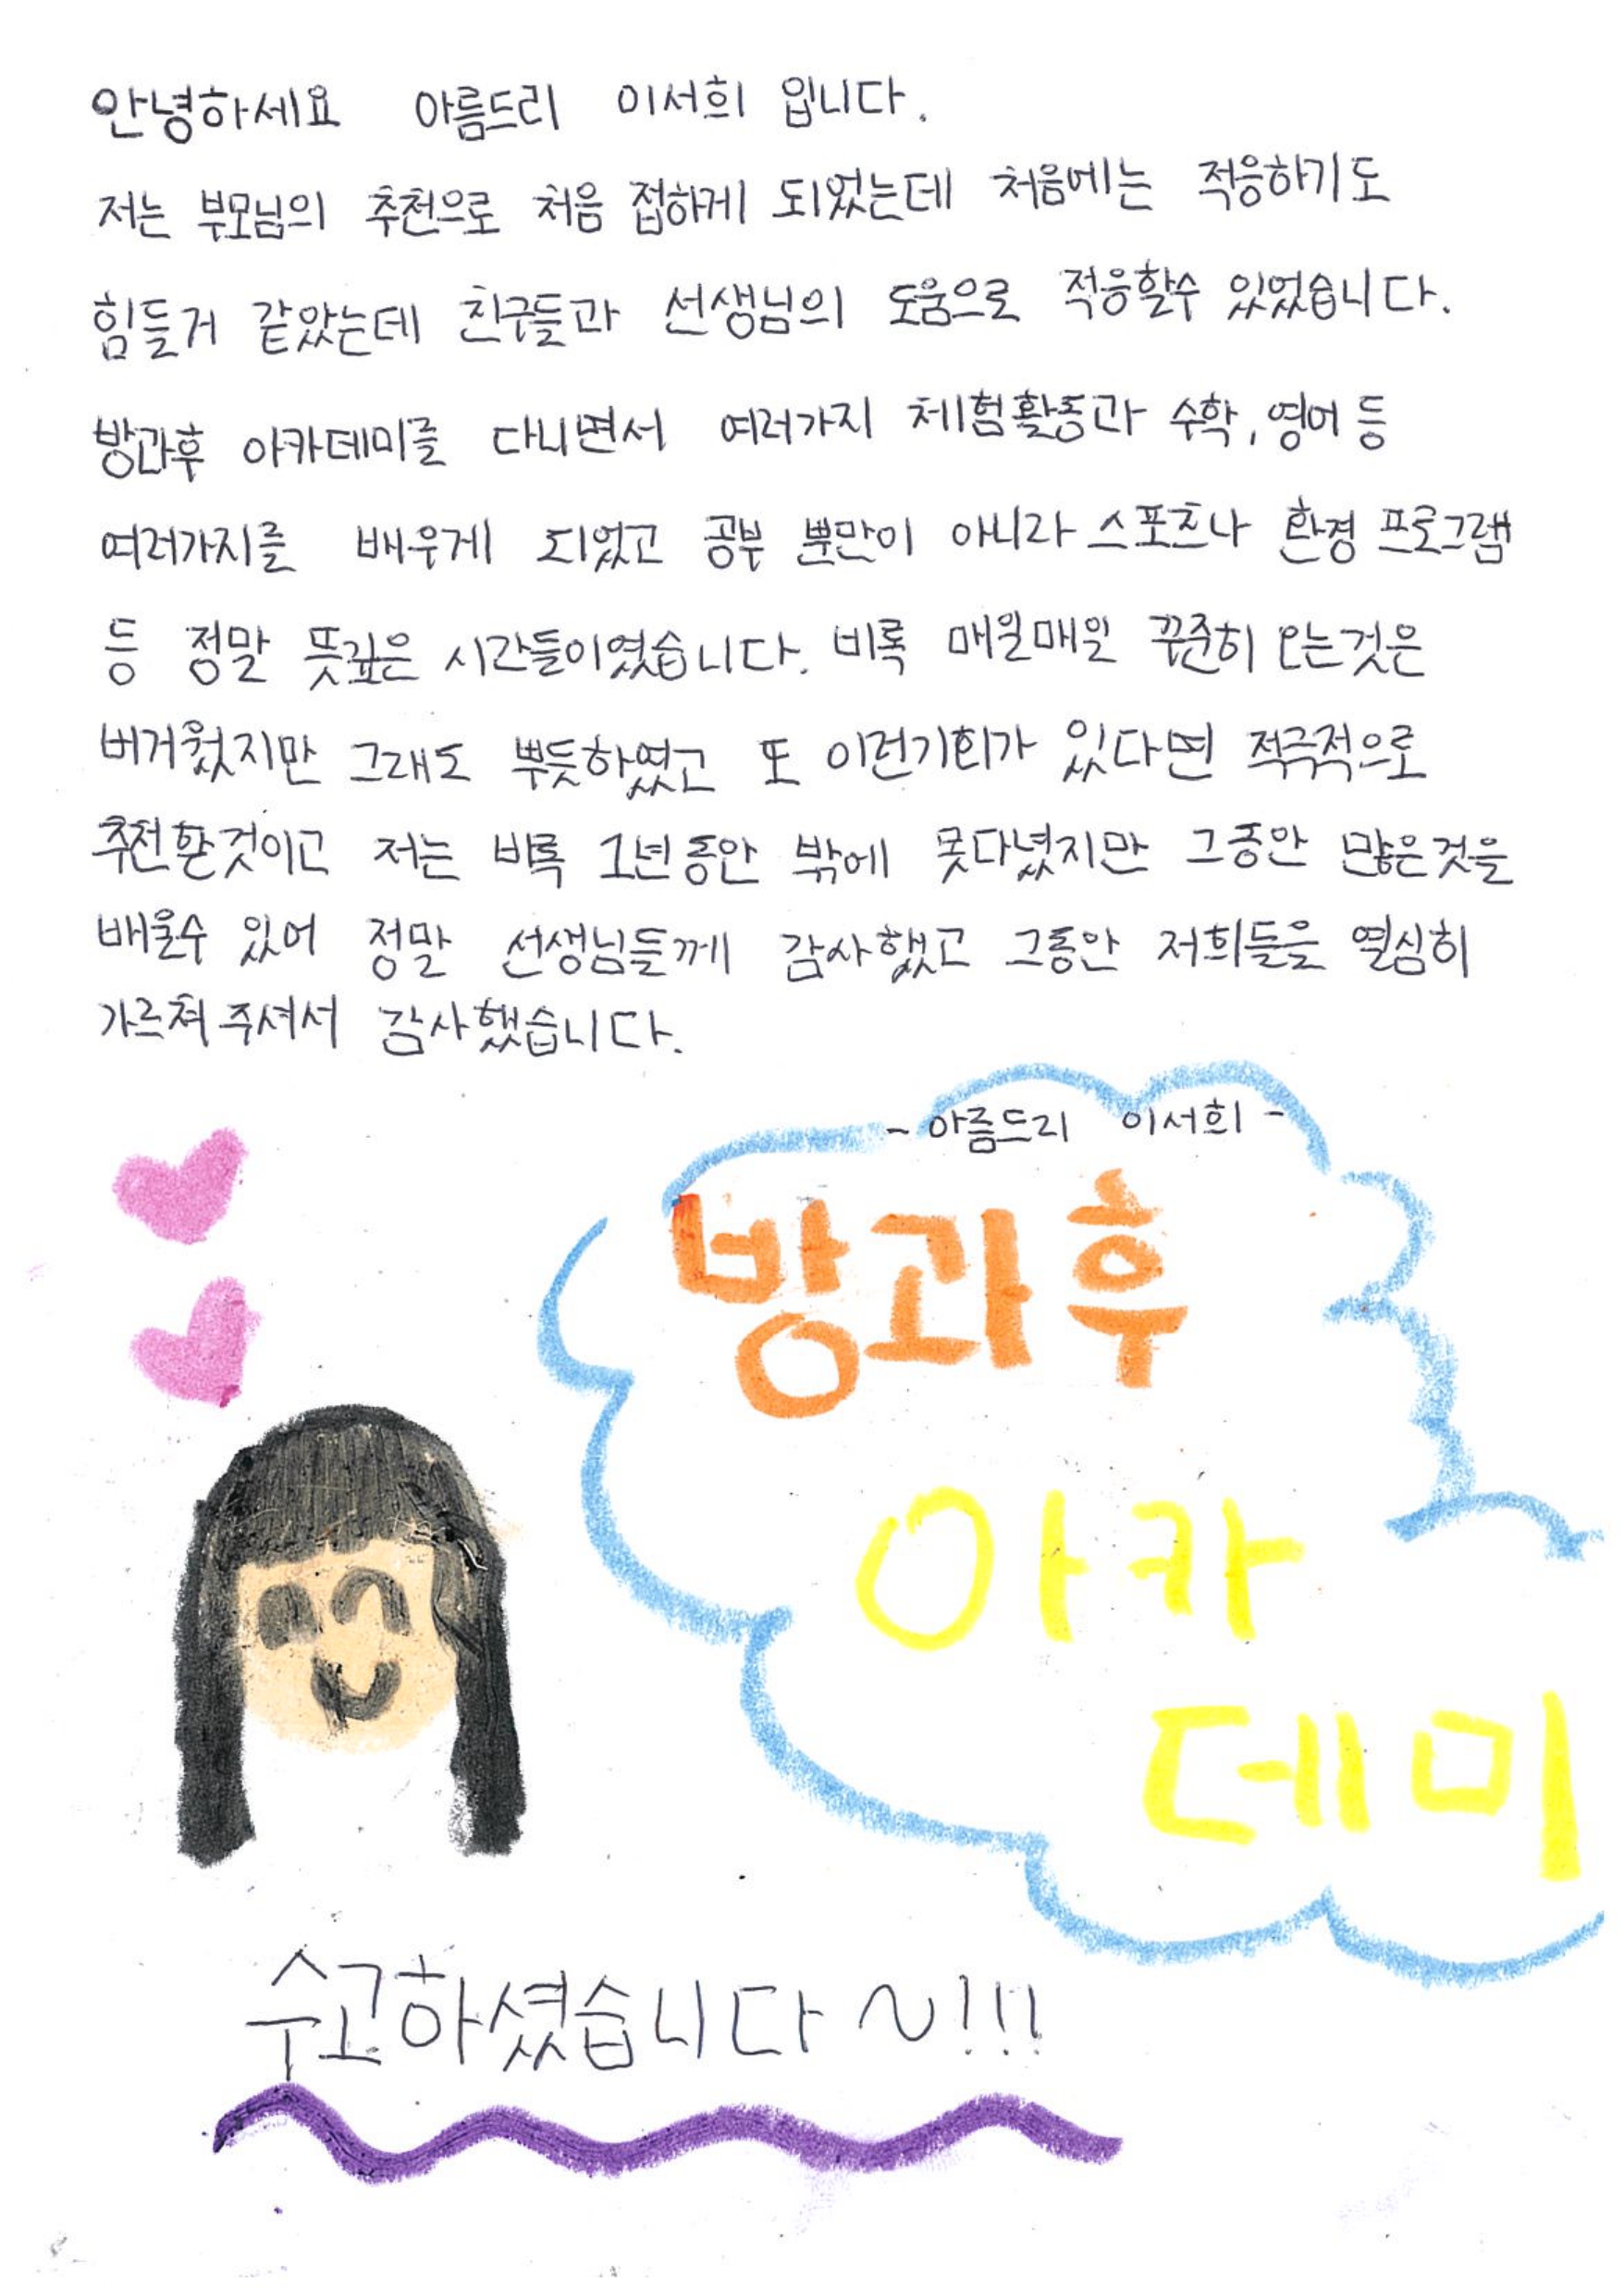 안녕하세요 아름드리 이서희 입니다.
저는 부모님의 추천으로 처음 접하게 되었는데 처음에는 적응하기도
힘들거 같았는데 친구들과 선생님의 도움으로 적응할수 있었습니다.
방과후 아카데미를 다니면서 여러가지 체험활동과 수학, 영어 등
여러가지를 배우게 되었고 공부 뿐만이 아니라 스포츠나 환경 프로그램
등 정말 뜻깊은 시간들이였습니다. 비록 매일매일 꾸준히 오는것은
버거웠지만 그래도 뿌듯하였고 또 이런기회가 있다면 적극적으로
추천할것이고 저는 비록 1년동안 밖에 못다녔지만 그동안 많은것을
배울수 있어 정말 선생님들께 감사했고 그동안 저희들을 열심히
가르쳐 주셔서 감사했습니다.
- 아름드리 이서희 -
방과후
아카
데미
수고하셨습니다 ~!!!